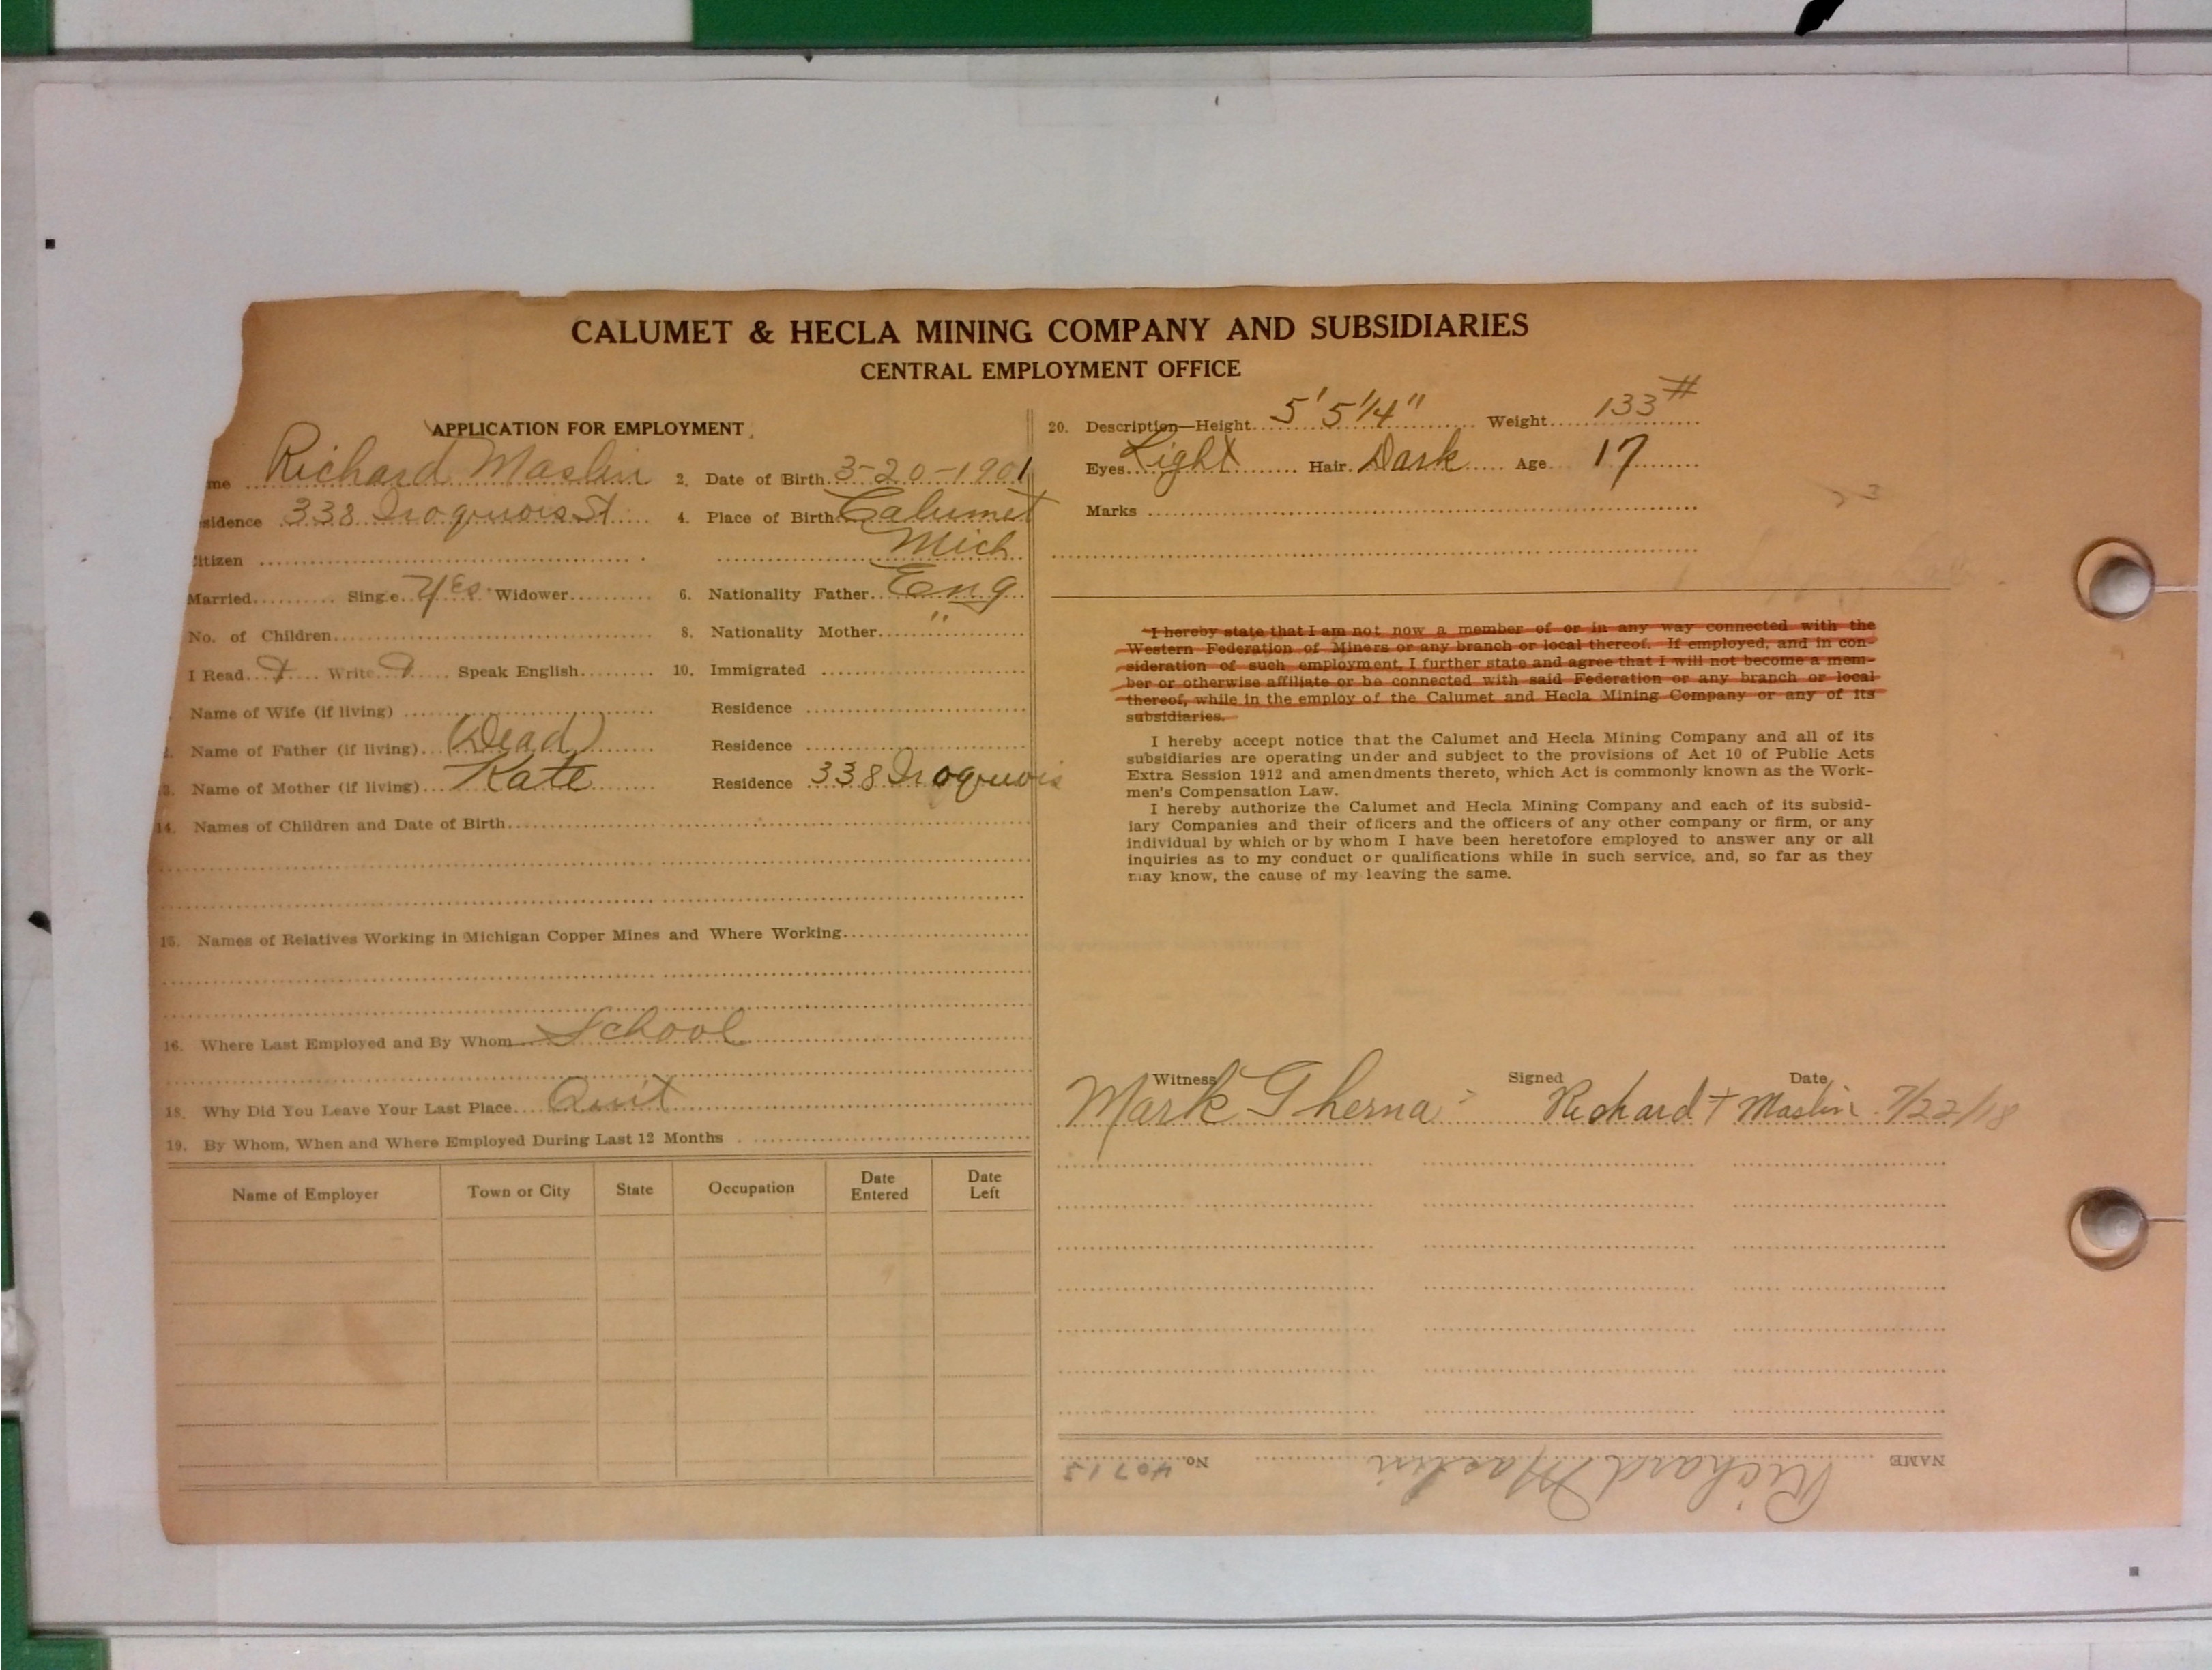 CALUMET & HECLA MINING COMPANY AND SUBSIDIARIES
CENTRAL EMPLOYMENT OFFICE
APPLICATION FOR EMPLOYMENT
me Richard Maslin 2. Date of Birth 3-20-1901
sidence 338 Iroquois St 4. Place of Birth Calumet
itizen Mich
Married Single Yes Widower 6. Nationality Father Eng
No. of Children 8. Nationality Mother "
I Read Write Speak English 10. Immigrated
Name of Wife (if living) Residence
Name of Father (if living) (Dead) Residence
3. Name of Mother (if living) Kate Residence 338 Iroquois
14. Names of Children and Date of Birth
15. Names of Relatives Working in Michigan Copper Mines and Where Working
16. Where Last Employed and By Whom School
18. Why Did You Leave Your Last Place Quit
19. By Whom, When and Where Employed During Last 12 Months
Name of Employer Town or City State Occupation Date Entered Date Left
20. Description—Height 5' 5 1/4" Weight 133#
Eyes Light Hair Dark Age 17
Marks
I hereby state that I am not now a member of or in any way connected with the
Western Federation of Miners or any branch or local thereof. If employed, and in con-
sideration of such employment, I further state and agree that I will not become a mem-
ber or otherwise affiliate or be connected with said Federation or any branch or local
thereof, while in the employ of the Calumet and Hecla Mining Company or any of its
subsidiaries.
I hereby accept notice that the Calumet and Hecla Mining Company and all of its
subsidiaries are operating under and subject to the provisions of Act 10 of Public Acts
Extra Session 1912 and amendments thereto, which Act is commonly known as the Work-
men's Compensation Law.
I hereby authorize the Calumet and Hecla Mining Company and each of its subsid-
iary Companies and their officers and the officers of any other company or firm, or any
individual by which or by whom I have been heretofore employed to answer any or all
inquiries as to my conduct or qualifications while in such service, and, so far as they
may know, the cause of my leaving the same.
Witness Signed Date
Mark Gherna Richard + Maslin 7/22/18
NAME Richard Maslin No. 40715